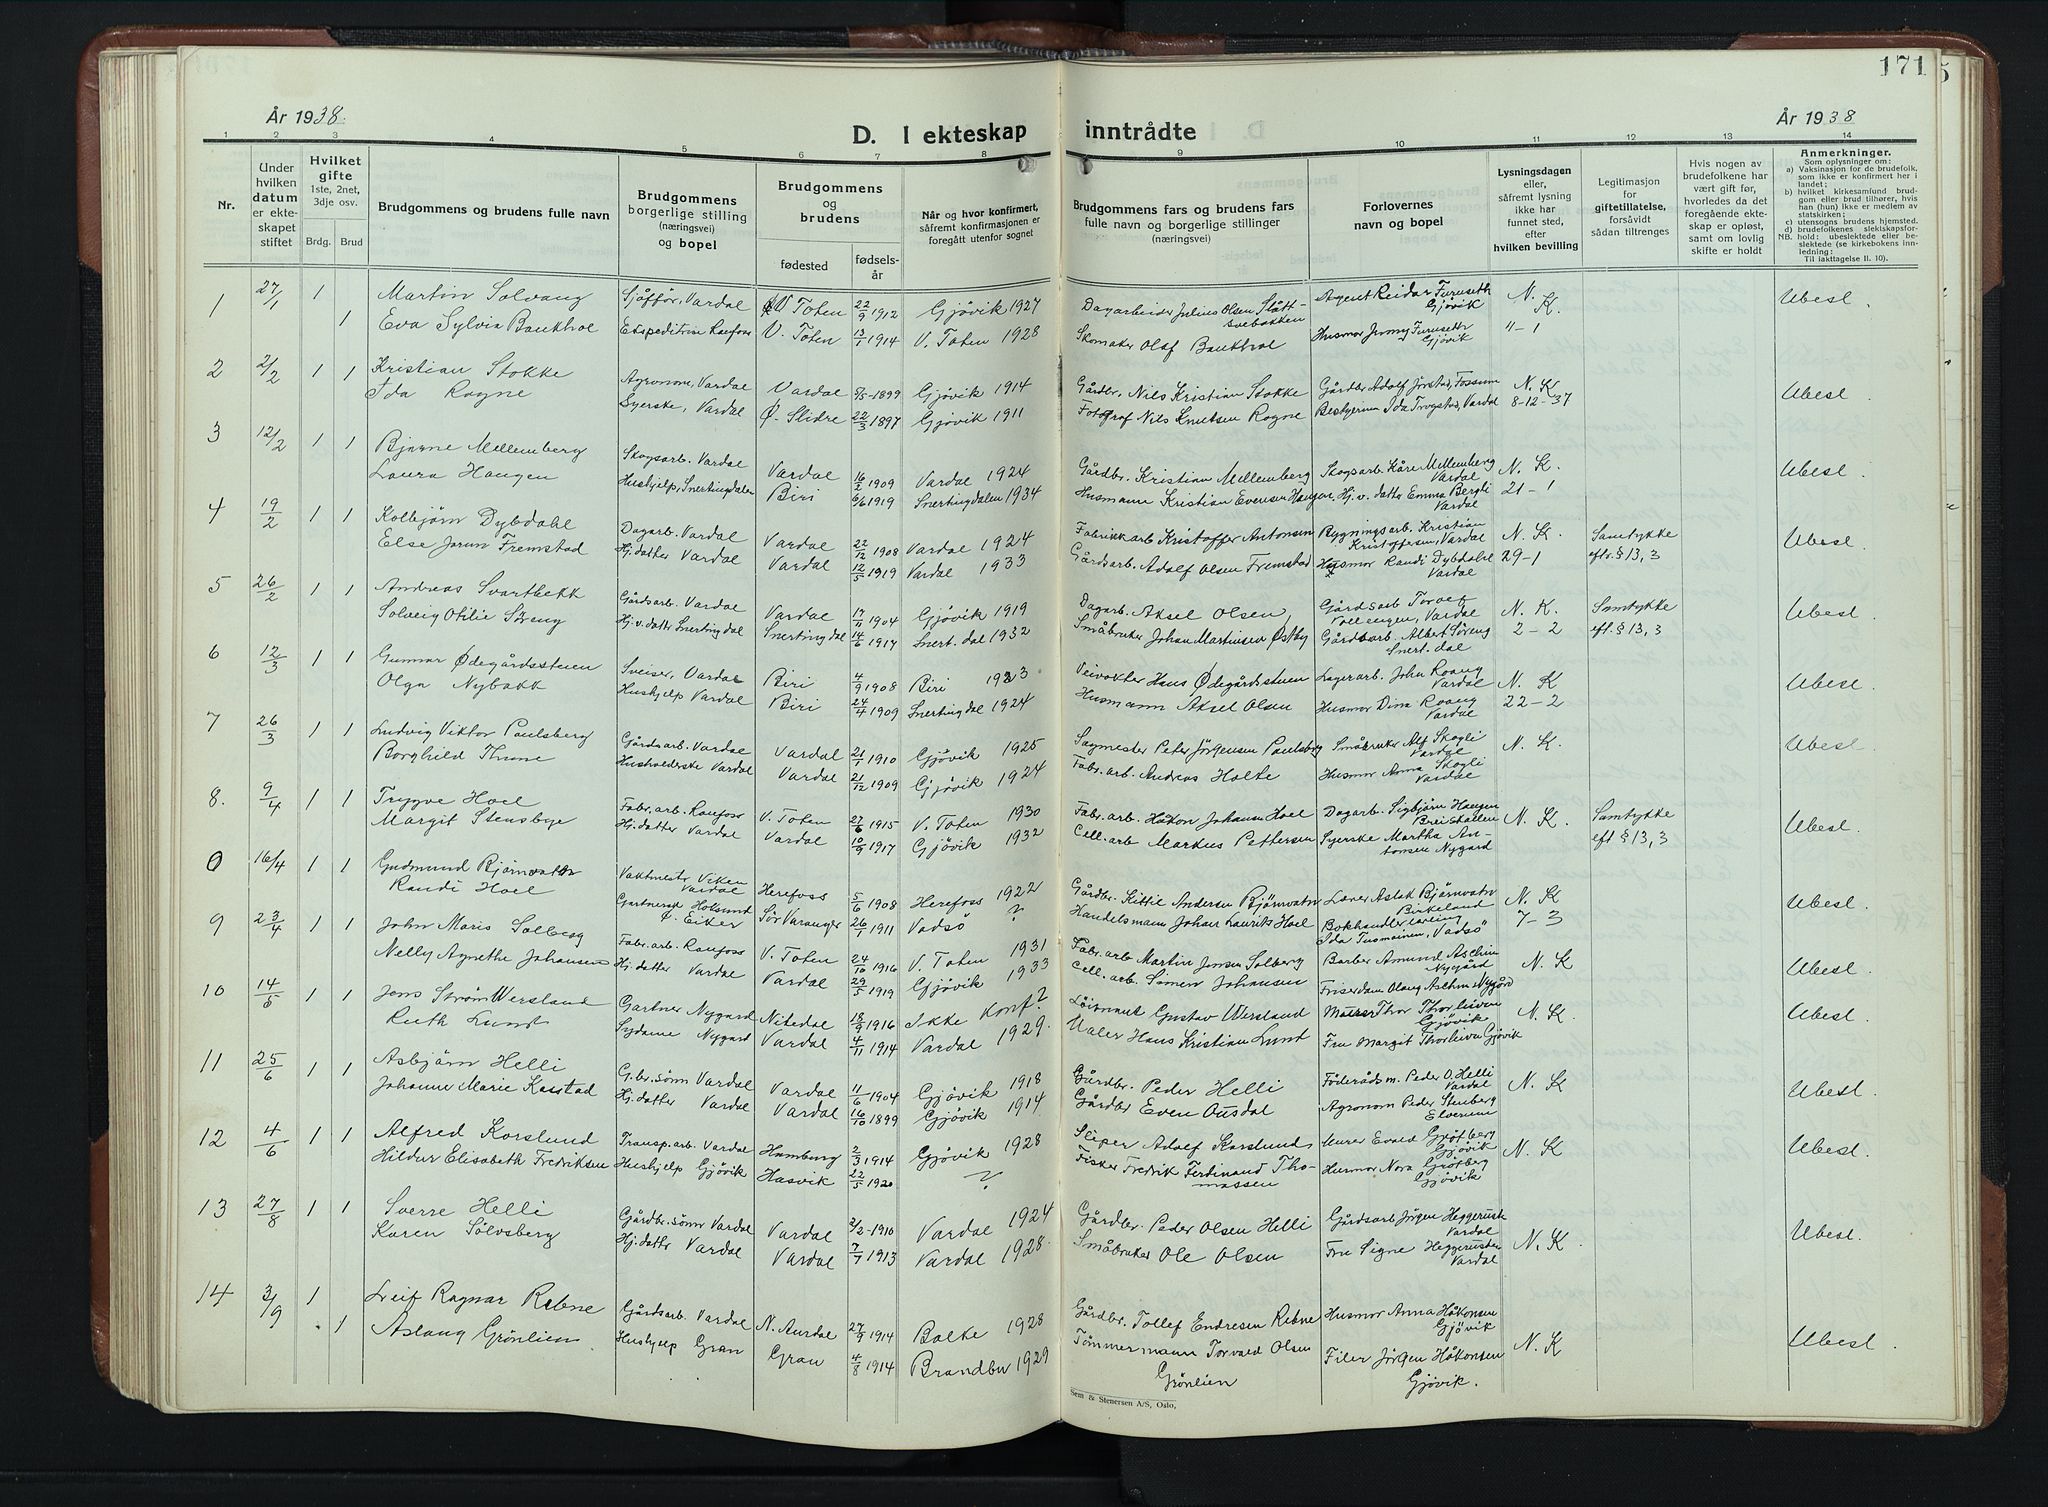 171
År 1938.
D. I ekteskap inntrådte
År 1938
1 2 3 4 5 6 7 8 9 10 11 12 13 14
Nr.
Under hvilken datum er ekteskapet stiftet
Hvilket gifte 1ste, 2net, 3dje osv.
Brdg. Brud
Brudgommens og brudens fulle navn
Brudgommens borgerlige stilling (næringsvei) og bopel
Brudgommens og brudens
fødested fødselsår
Når og hvor konfirmert, såfremt konfirmasjonen er foregått utenfor sognet
Brudgommens fars og brudens fars fulle navn og borgerlige stillinger (næringsvei)
Forlovernes navn og bopel
Lysningsdagen eller, såfremt lysning ikke har funnet sted, efter hvilken bevilling
Legitimasjon for giftetillatelse, forsåvidt sådan tiltrenges
Hvis nogen av brudefolkene har vært gift før, hvorledes da det foregående ekteskap er opløst, samt om lovlig skifte er holdt
Anmerkninger.
Som oplysninger om:
a) Vaksinasjon for de brudefolk, som ikke er konfirmert her i landet;
b) hvilket kirkesamfund brudgom eller brud tilhører, hvis han (hun) ikke er medlem av statskirken;
c) utensogns brudens hjemsted.
d) brudefolkenes slektskapsforhold: ubeslektede eller beslektede (se kirkebokens innledning:
NB.
Til iakttagelse II. 10).
1 27/1 1 Martin Solvang Sjåfför, Vardal V. Toten 22/9 1912 Gjøvik 1927 Dagarbeider Julius Olsen Slåttsvebakken Agent Reidar Furuseth Gjøvik N. K. Ubesl.
1 Eva Sylvia Baukhol Ekspeditrise Raufoss V. Toten 13/1 1914 V. Toten 1928 Skomaker Olaf Baukhol Husmor Jenny Furuseth Gjøvik 11-1
2 2/2 1 1 Kristian Stokke Agronom, Vardal Vardal 2/5-1899 Gjøvik 1914 Gårdbr. Nils Kristian Stokke Gårdbr Adolf Jörstad, Fossum N. K Ubesl
Ida Rogne Syerske, Vardal Ø. Slidre 22/3 1897 Gjøvik 1911 Fotograf Nils Knutsen Rogne Bestyrerin Ida Trogstad, Vardal 8-12-37
3 12/2 1 1 Bjarne Mellemberg Skogsarb. Vardal Vardal 16/2 1909 Vardal 1924 Gårdbr. Kristian Mellemberg Skogsarb Kåre Mellemberg Vardal N. K. Ubesl
Laura Haugen Hushjelp, Snertingdalen Biri 6/6 1919 Snertingdalen 1934 Husmann Kristian Evensen Haugen Hj. v. datter Emma Bergli Vardal 21-1
4 19/2 1 1 Kolbjørn Dybdahl Dagarb. Vardal Vardal 22/12 1908 Vardal 1924 Fabrikkarb Kristoffer Antonsen Bygningsarb. Kristian Kristoffersen, Vardal N. K. Samtykke Ubesl
Else Jorun Fremstad Hj. datter Vardal Vardal 12/5 1919 Vardal 1933 Gårdsarb. Adolf Olsen Fremstad Husmor Randi Dybdahl Vardal 29-1 eft. § 13, 3
5 26/2 1 1 Andreas Svartbekk Gårdsarb. Vardal Vardal 17/11 1904 Gjøvik 1919 Dagarb. Aksel Olsen Gårdsarb Torleif Vollengen, Vardal N. K. Samtykke Ubesl
Solveig Otilie Streng Hj. v. datter Snertingdal Snertingdal 14/6 1917 Snert. dal 1932 Småbruker Johan Martinsen Østby Gårdbarb. Albert Söreng Snert. dal 2-2 eft. § 13, 3
6 12/3 1 1 Gunnar Ødegårdsstuen Sveiser, Vardal Biri 4/9 1908 Biri 1923 Veivokter Hans Ødegårdsstuen Lagerarb. John Roang Vardal N. K Ubesl
Olga Nybakk Hushjelp Vardal Biri 24/4 1909 Snertingdal 1924 Husmann Aksel Olsen Husmor Dina Roang Vardal 22-2
7 26/3 1 1 Ludvig Viktor Paulsberg Gårdsarb. Vardal Vardal 21/1 1910 Gjøvik 1925 Sagmester Peter Jörgensen Paulsberg Småbruker Alf Skogli Vardal N. K. Ubesl
Borghild Thune Husholderske Vardal Vardal 21/12 1909 Gjøvik 1924 Fabr. arb. Andreas Holte Husmor Anna Skogli Vardal
8. 9/4 1 1 Trygve Hoel Fabr. arb. Raufoss V. Toten 27/6 1915 V. Toten 1930 Fabr. arb. Håkon Johansen Hoel Dagarb. Sigbjörn Haugen Breiskallen N. K. Samtykke Ubesl.
Margit Stensbye Hj. datter Vardal Vardal 10/9 1917 Gjøvik 1932 Cell. arb Markus Pettersen Syerske Martha Antonsen Nygard eft § 13, 3
0 16/4 1 1 Gudmund Bjørnvatn Vaktmester Viken Vardal Herefoss 5/6 1908 Herefoss 1922 Gårdbr. Kittil Andersen Bjørnvatn Lærer Aslak Bjørnvatn Birkeland N. K Ubesl.
Randi Hoel Gartnersk Hoksund Ø. Eiker Sør Varanger 26/1 1911 Vadsø ? Handelsmann Johan Laurits Hoel Bokhandler Ida Tusmainen, Vadsö 7-3
9 23/4 1 1 John Maris Solberg Fabr. arb. Raufoss V. Toten 24/10 1916 V. Toten 1931 Fabr. arb Martin Jensen Solberg Barber Amund Aschim Nygård N. K Ubesl.
Nelly Agnethe Johansen Hj. datter Vardal Vardal 29/5 1919 Gjøvik 1933 Cell. arb. Simen Johansen Friserdam Olaug Aschim Nygård
10 14/5 1 1 Jens Strøm Wersland Gartner Nygard Nitedal 18/9 1916 Ikke Konf? Løitnant Gustav Wersland Murer Thor Thorleiven Gjøvik N. K. Ubesl.
Ruth Lund Sydame Nygard Vardal 4/11 1914 Vardal 1929. Maler Hans Kristian Lund Fru Margit Thorleiven Gjøvik
11 25/6 1 1 Asbjörn Helli G.br. sönn Vardal Vardal 11/6 1904 Gjøvik 1918 Gårdbr. Peder Helli Föderådsm. Peder O. Helli Vardal N. K Ubesl.
Johanne Marie Karstad Hj. datter Vardal Vardal 16/10 1899 Gjøvik 1914 Gårdbr Even Ousdal Agronom Peder Stenberg Elverum
12 4/6 1 1 Alfred Korslund Transp. arb. Vardal Hamburg 2/3 1914 Gjøvik 1928 Sliper Adolf Korslund Murer Evald Grötberg Gjøvik N. K Ubesl.
Hildur Elisabeth Fredriksen Hushjelp Gjøvik Hasvik 22/5 1920 ? Fisker Fredrik Ferdinand Thomassen Husmor Nora Grötberg Gjøvik
13 27/8 1 1 Sverre Helli Gårdbr. sönn Vardal Vardal 2/2-1910 Vardal 1924 Gårdbr. Peder Olsen Helli Gårdsarb Jörgen Heggerust Vardal N. K Ubesl.
Karen Sölvsberg Hj. datter Vardal Vardal 7/7 1913 Vardal 1928. Småbruker Ole Olsen Fru Signe Heggerusten Vardal
14 3/9 1 Leif Ragnar Rebne Gårdsarb. Vardal N. Aurdal 27/9 1914 Bolke 1928 Gårdbr. Tollef Endresen Rebne Husmor Anna Håkonsen Gjøvik N. K Ubesl.
1 Aslaug Grönlien Hushjelp Gran Gran 4/8 1914 Brandbu 1929 Tömmermann Torvald Olsen Grönlien Filer Jörgen Håkonsen Gjøvik.
Sem & Stenersen A/S, Oslo.